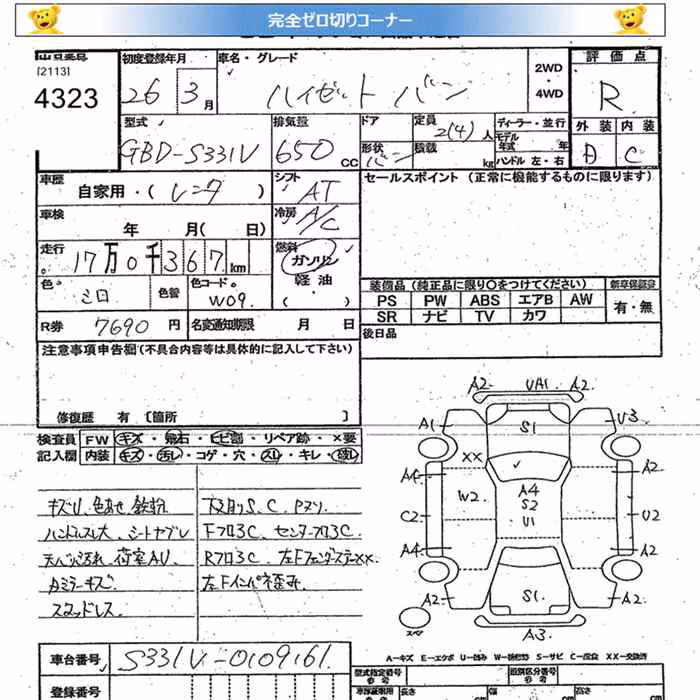 完全ゼロ切りコーナー
(2113)
4323
初度登録年月
26 3月
車名・グレード
ハイゼット バン
2WD
・
4WD
評価点
R
外装 内装
D C
型式
GBD-S331V
排気量
650 CC
ドア
形状
バン
定員
2(4)人
積載 kg
ディーラー・並行
モデル
年式 年
ハンドル 左・右
車歴
自家用・(レンタ)
シフト
AT
セールスポイント (正常に機能するものに限ります)
車検
年 月( 日)
冷房
A/C
走行
17万0千367km
燃料
ガソリン
軽油
( )
色
シロ
色替
色コード
W09.
装備品 (純正品に限り○をつけてください) 新車保証書
PS PW ABS エアB AW
SR ナビ TV カワ
有・無
R券 7690円
名変通知期限 月 日
後日品
注意事項申告欄 (不具合内容等は具体的に記入して下さい)
修復歴 有 [箇所 ]
検査員 FW キズ・飛石・ヒビ割・リペア跡・×要
記入欄 内装 キズ・汚レ・コゲ・穴・スレ・キレ・破レ
キズU、色あせ、鉄粉
ハンドルスレ大、シートヤブレ
天バリ汚れ、荷室AU、
スタッドレス
下廻りS、C
Fフロ3C、センターフロ3C、
Rフロ3C、
左Fインパネ歪み
A2 UA1 A2
A1 S1 U3
XX
A2
W2 A4 S2 U1
C2 U2
A4 A2
A2 S1 A2
スペア
A3
A…キズ E…エクボ U…凹み W…補修跡 S…サビ C…腐食 XX…交換済
車台番号 S331V-0109161
登録番号
型式指定番号
類別区分番号
長さ 幅 高さ